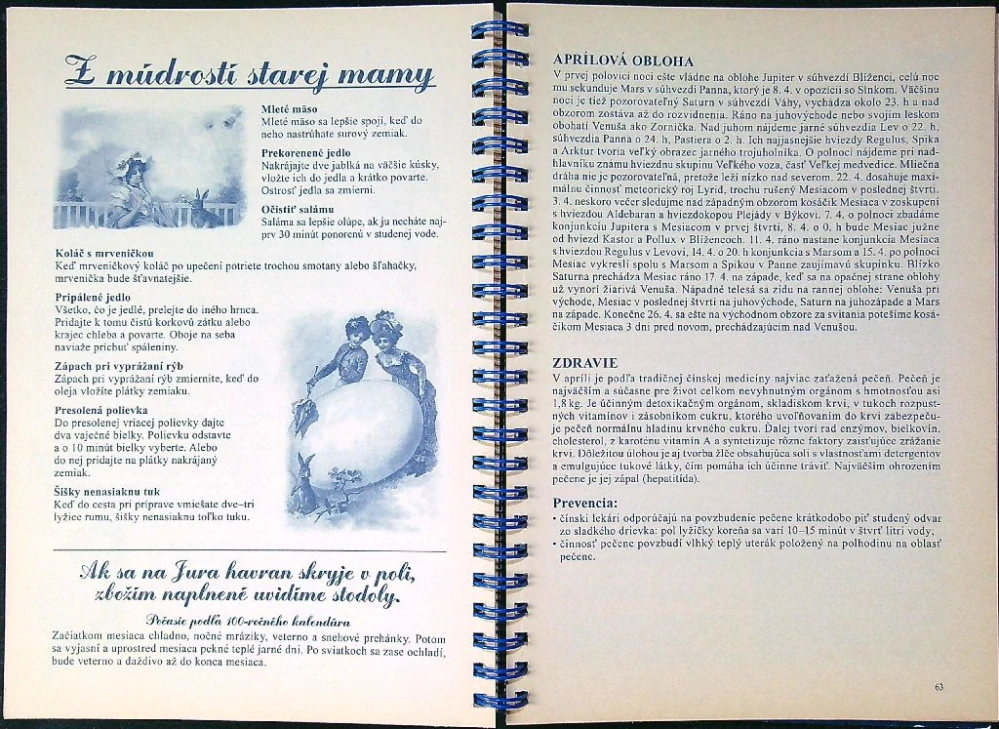 Z múdrostí starej mamy
Mleté mäso
Mleté mäso sa lepšie spojí, keď do
neho nastrúhate surový zemiak.
Prekorenené jedlo
Nakrájajte dve jablká na väčšie kúsky,
vložte ich do jedla a krátko povarte.
Ostrosť jedla sa zmierni.
Očistiť salámu
Saláma sa lepšie olúpe, ak ju necháte naj-
prv 30 minút ponorenú v studenej vode.
Koláč s mrveničkou
Keď mrveničkový koláč po upečení potriete trochou smotany alebo šľahačky,
mrvenička bude šťavnatejšie.
Pripálené jedlo
Všetko, čo je jedlé, prelejte do iného hrnca.
Pridajte k tomu čistú korkovú zátku alebo
krajec chleba a povarte. Oboje na seba
naviaže príchuť spáleniny.
Zápach pri vyprážaní rýb
Zápach pri vyprážaní rýb zmiernite, keď do
oleja vložíte plátky zemiaku.
Presolená polievka
Do presolenej vriacej polievky dajte
dva vaječné bielky. Polievku odstavte
a o 10 minút bielky vyberte. Alebo
do nej pridajte na plátky nakrájaný
zemiak.
Šišky nenasiaknu tuk
Keď do cesta pri príprave vmiešate dve–tri
lyžice rumu, šišky nenasiaknu toľko tuku.
Ak sa na Jura havran skryje v poli,
zbožím naplnené uvidíme stodoly.
Počasie podľa 100-ročného kalendára
Začiatkom mesiaca chladno, nočné mrázíky, veterno a snehové prehánky. Potom
sa vyjasní a uprostred mesiaca pekné teplé jarné dni. Po sviatkoch sa zase ochladí,
bude veterno a daždivo až do konca mesiaca.
APRÍLOVÁ OBLOHA
V prvej polovici noci ešte vládne na oblohe Jupiter v súhvezdí Blíženci, celú noc
mu sekunduje Mars v súhvezdí Panna, ktorý je 8. 4. v opozícii so Slnkom. Väčšinu
noci je tiež pozorovateľný Saturn v súhvezdí Váhy, vychádza okolo 23. h a nad
obzorom zostáva až do rozvidnenia. Ráno na juhovýchode nebo svojim leskom
obohatí Venuša ako Zornička. Nad juhom nájdeme jarné súhvezdia Lev o 22. h,
súhvezdia Panna o 24. h, Pastiera o 2. h. Ich najjasnejšie hviezdy Regulus, Spika
a Arktur tvoria veľký obrazec jarného trojuholníka. O polnoci nájdeme pri nad-
hlavníku známu hviezdnu skupinu Veľkého voza, časť Veľkej medvedice. Mliečna
dráha nie je pozorovateľná, pretože leží nízko nad severom. 22. 4. dosahuje maxi-
málnu činnosť meteorický roj Lyríd, trochu rušený Mesiacom v poslednej štvrti.
3. 4. neskoro večer sledujme nad západným obzorom kosáčik Mesiaca v zoskupení
s hviezdou Aldebaran a hviezdokopou Plejády v Býkovi. 7. 4. o polnoci zbadáme
konjunkciu Jupitera s Mesiacom v prvej štvrti, 8. 4. o 0. h bude Mesiac južne
od hviezd Kastor a Pollux v Blížencoch. 11. 4. ráno nastane konjunkcia Mesiaca
s hviezdou Regulus v Levovi, 14. 4. o 20. h konjunkcia s Marsom a 15. 4. po polnoci
Mesiac vykreslí spolu s Marsom a Spikou v Panne zaujímavú skupinku. Blízko
Saturna prechádza Mesiac ráno 17. 4. na západe, keď sa na opačnej strane oblohy
už vynorí žiarivá Venuša. Nápadné telesá sa zídu na rannej oblohe: Venuša pri
východe, Mesiac v poslednej štvrti na juhovýchode, Saturn na juhozápade a Mars
na západe. Konečne 26. 4. sa ešte na východnom obzore za svitania potešíme kosá-
čikom Mesiaca 3 dni pred novom, prechádzajúcim nad Venušou.
ZDRAVIE
V apríli je podľa tradičnej čínskej medicíny najviac zaťažená pečeň. Pečeň je
najväčším a súčasne pre život celkom nevyhnutným orgánom s hmotnosťou asi
1,8 kg. Je účinným detoxikačným orgánom, skladiskom krvi, v tukoch rozpust-
ných vitamínov i zásobníkom cukru, ktorého uvoľňovaním do krvi zabezpeču-
je pečeň normálnu hladinu krvného cukru. Ďalej tvorí rad enzýmov, bielkovín,
cholesterol, z karoténu vitamín A a syntetizuje rôzne faktory zaisťujúce zrážanie
krvi. Dôležitou úlohou je aj tvorba žlče obsahujúca soli s vlastnosťami detergentov
a emulgujúce tukové látky, čím pomáha ich účinne tráviť. Najväčším ohrozením
pečene je jej zápal (hepatitída).
Prevencia:
• čínski lekári odporúčajú na povzbudenie pečene krátkodobo piť studený odvar
zo sladkého drievka: pol lyžičky koreňa sa varí 10–15 minút v štvrť litri vody;
• činnosť pečene povzbudí vlhký teplý uterák položený na polhodinu na oblasť
pečene.
63